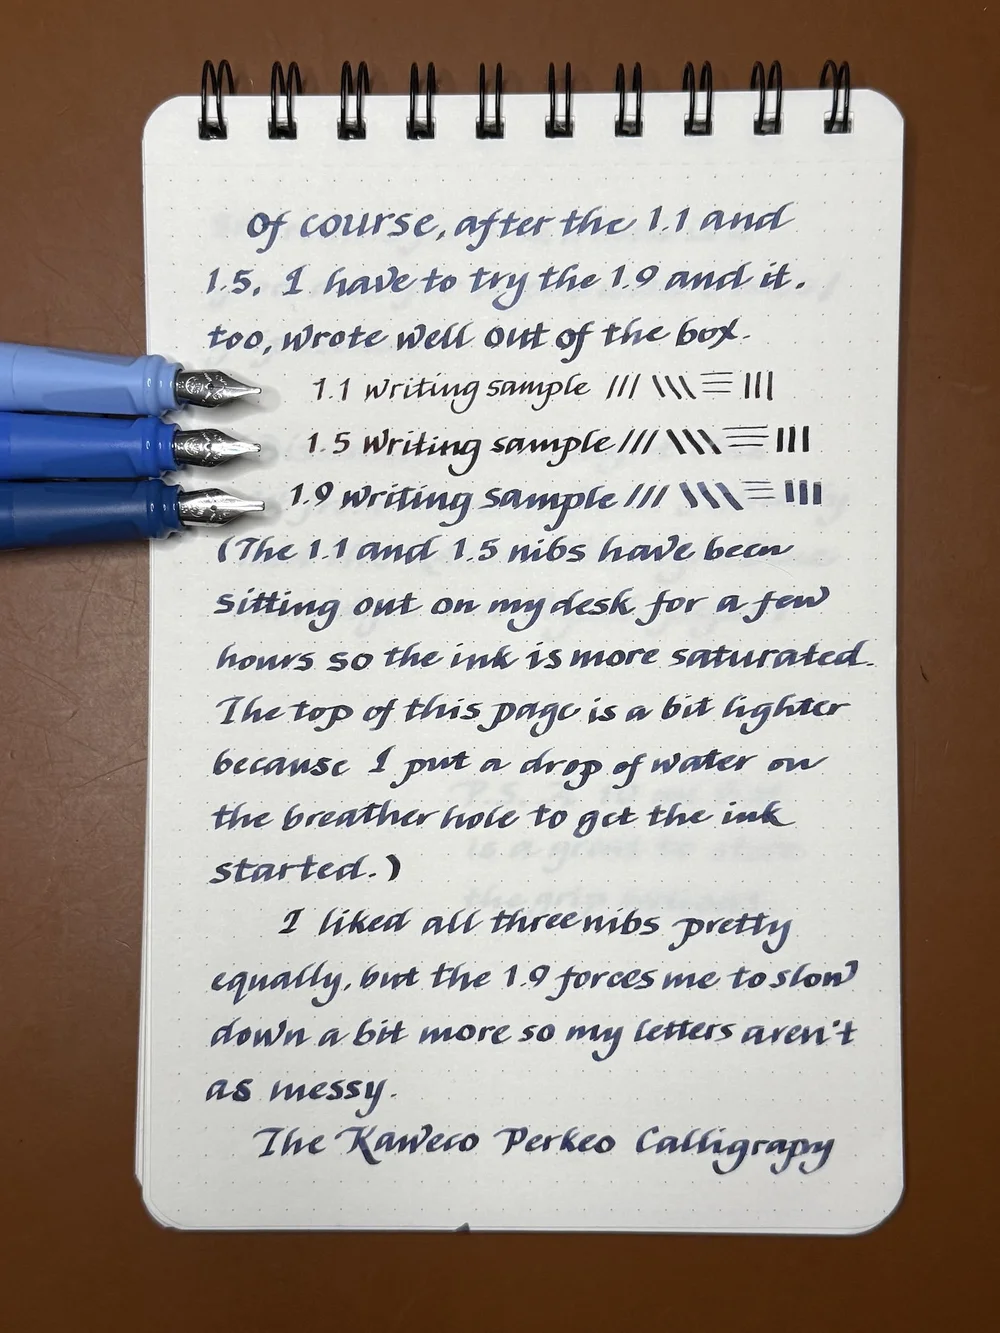 Of course, after the 1.1 and
1.5, I have to try the 1.9 and it.
too, wrote well out of the box.
1.1 writing sample
1.5 writing sample
1.9 writing sample
(The 1.1 and 1.5 nibs have been
sitting out on my desk for a few
hours so the ink is more saturated.
The top of this page is a bit lighter
because I put a drop of water on
the breather hole to get the ink
started.)
I liked all three nibs pretty
equally, but the 1.9 forces me to slow
down a bit more so my letters aren't
as messy.
The Kaweco Perkeo Calligrapy